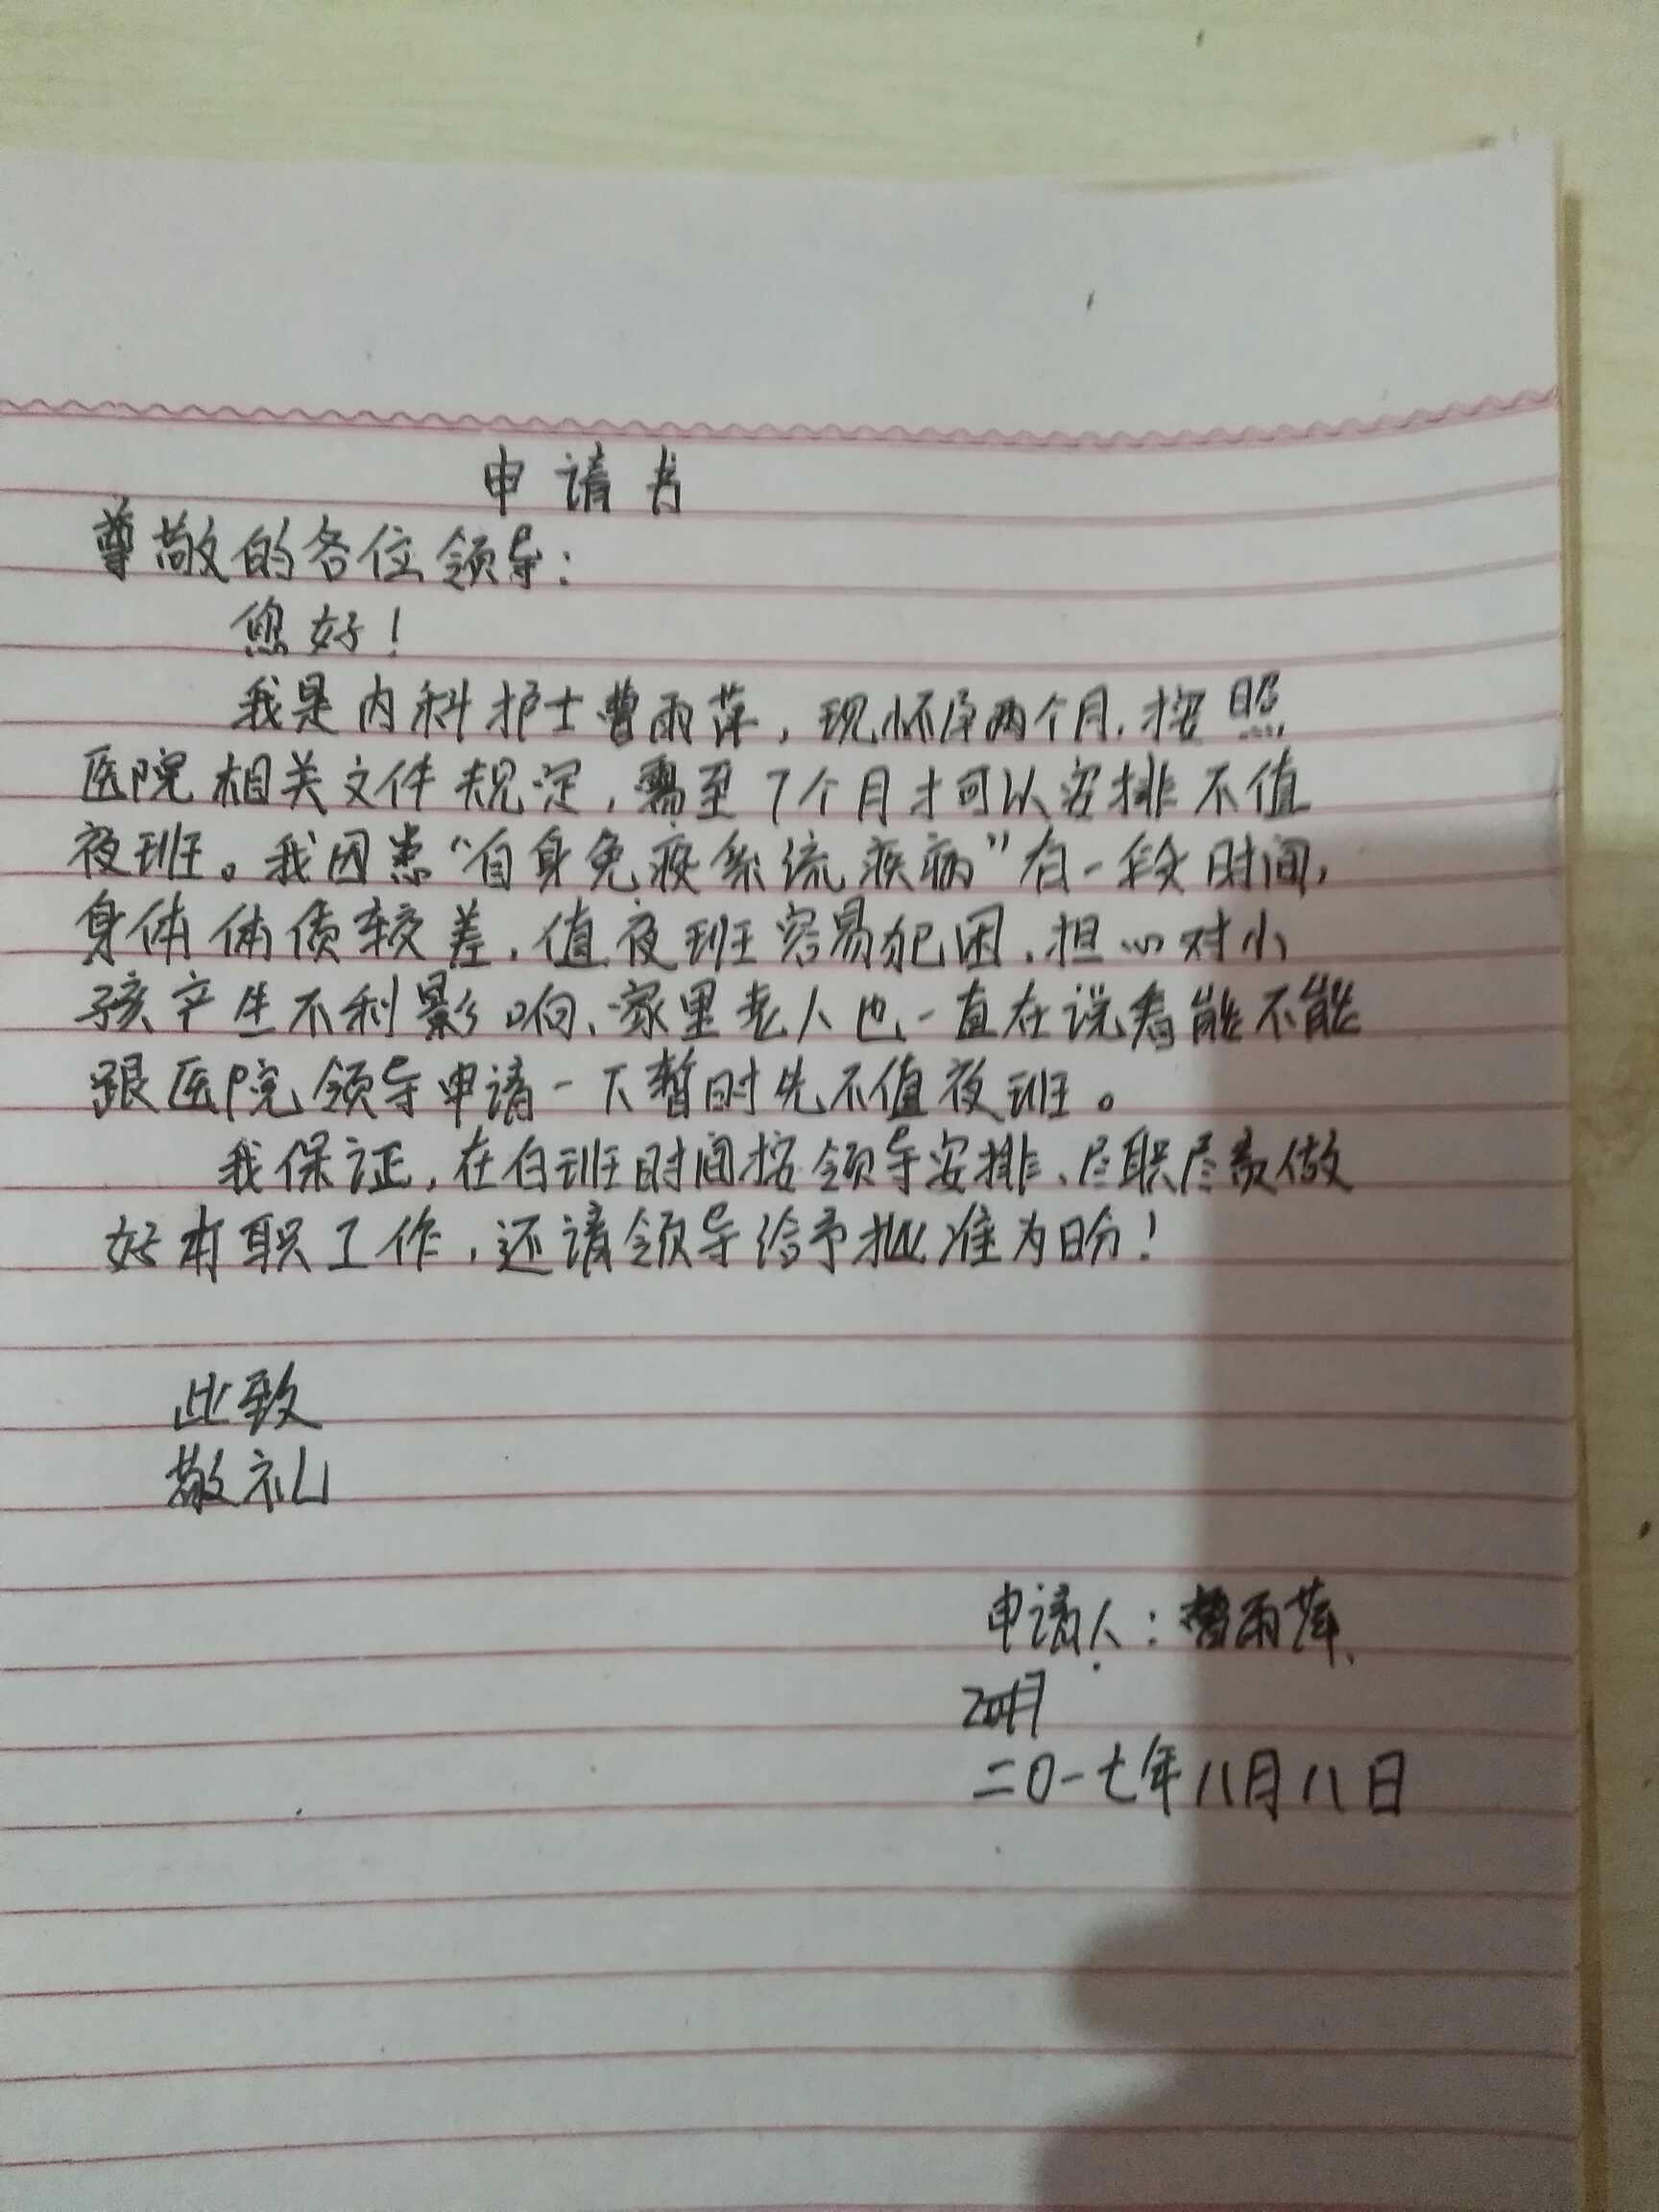 申请书
尊敬的各位领导：
您好！
我是内科护士曹雨萍，现怀孕两个月，按照
医院相关文件规定，需至7个月才可以安排不值
夜班。我因患“自身免疫系统疾病”有一段时间，
身体体质较差，值夜班容易犯困，担心对小
孩产生不利影响、家里老人也一直在说看能不能
跟医院领导申请一下暂时先不值夜班。
我保证，在白班时间按领导安排、尽职尽责做
好本职工作，还请领导给予批准为盼！
此致
敬礼
申请人：曹雨萍
二〇一七年八月八日